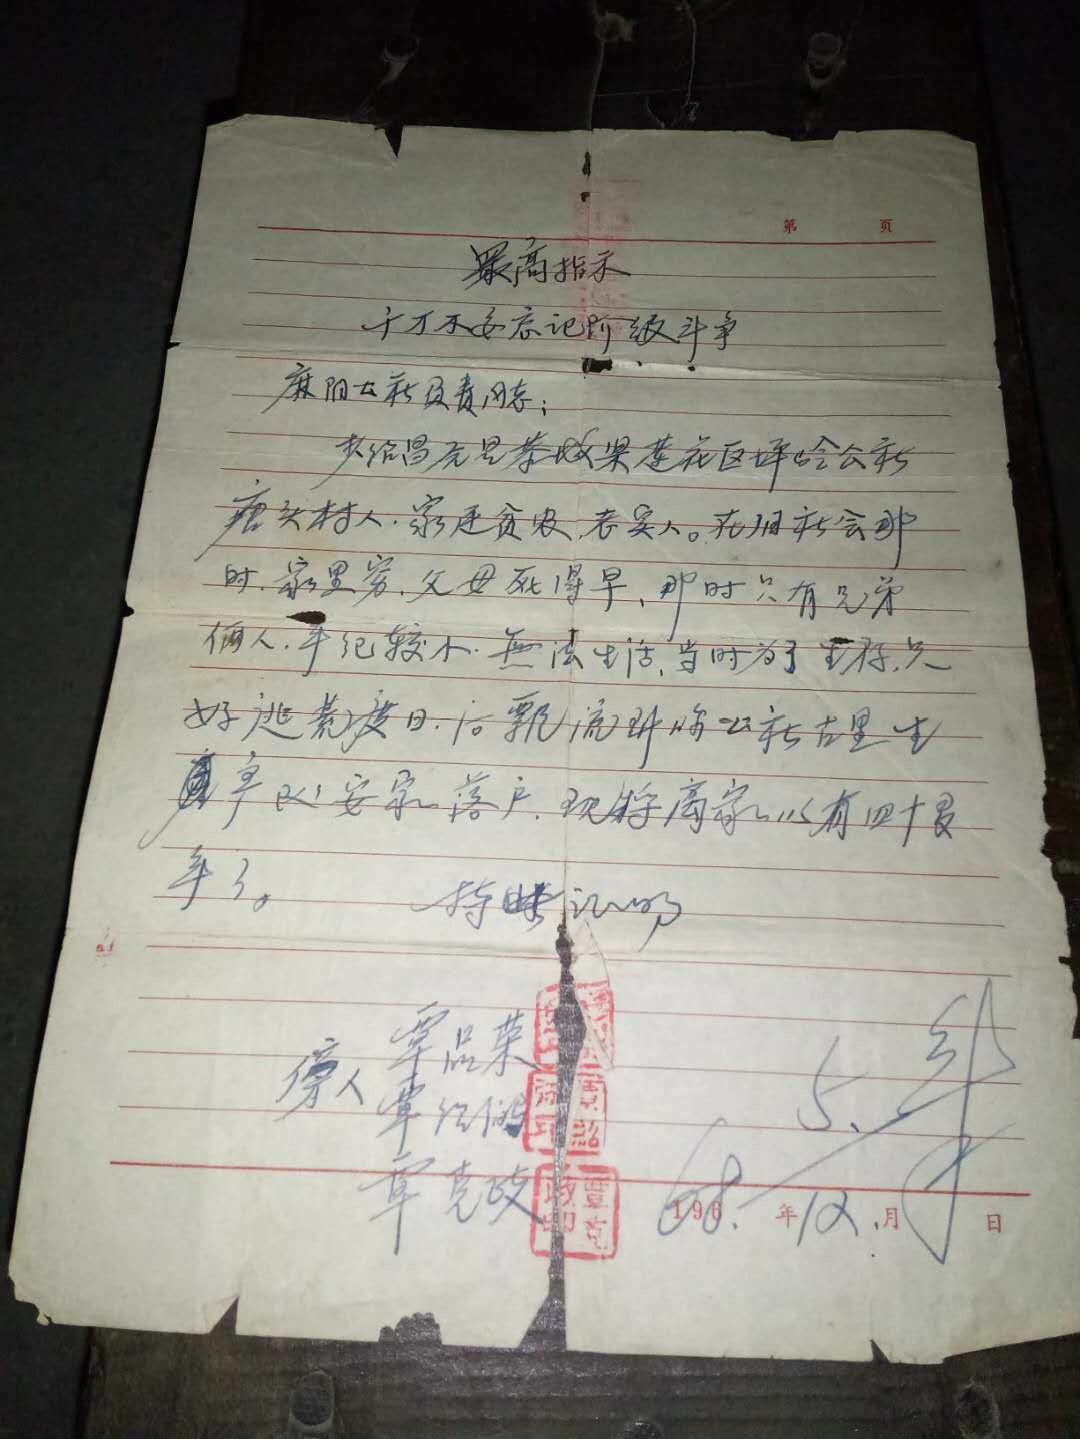 第 页
最高指示
千万不要忘记阶级斗争
麻阳公社负责同志：
绍昌兄是恭城果莲花区坪岭公社
唐头村人.家廷贫农,老实人。在旧社会那
时.家里穷.父母死得早、那时只有兄弟
俩人.年纪较小.無法生活,当时为了生存,只
好逃荒度日.后飘流到你公社古里生
产队安家落户.现将离家以有四十多
年了。 特此证明
傍人 覃品荣
覃绍
覃克政
覃克政印
196 年 月 日
68. 12. 5.